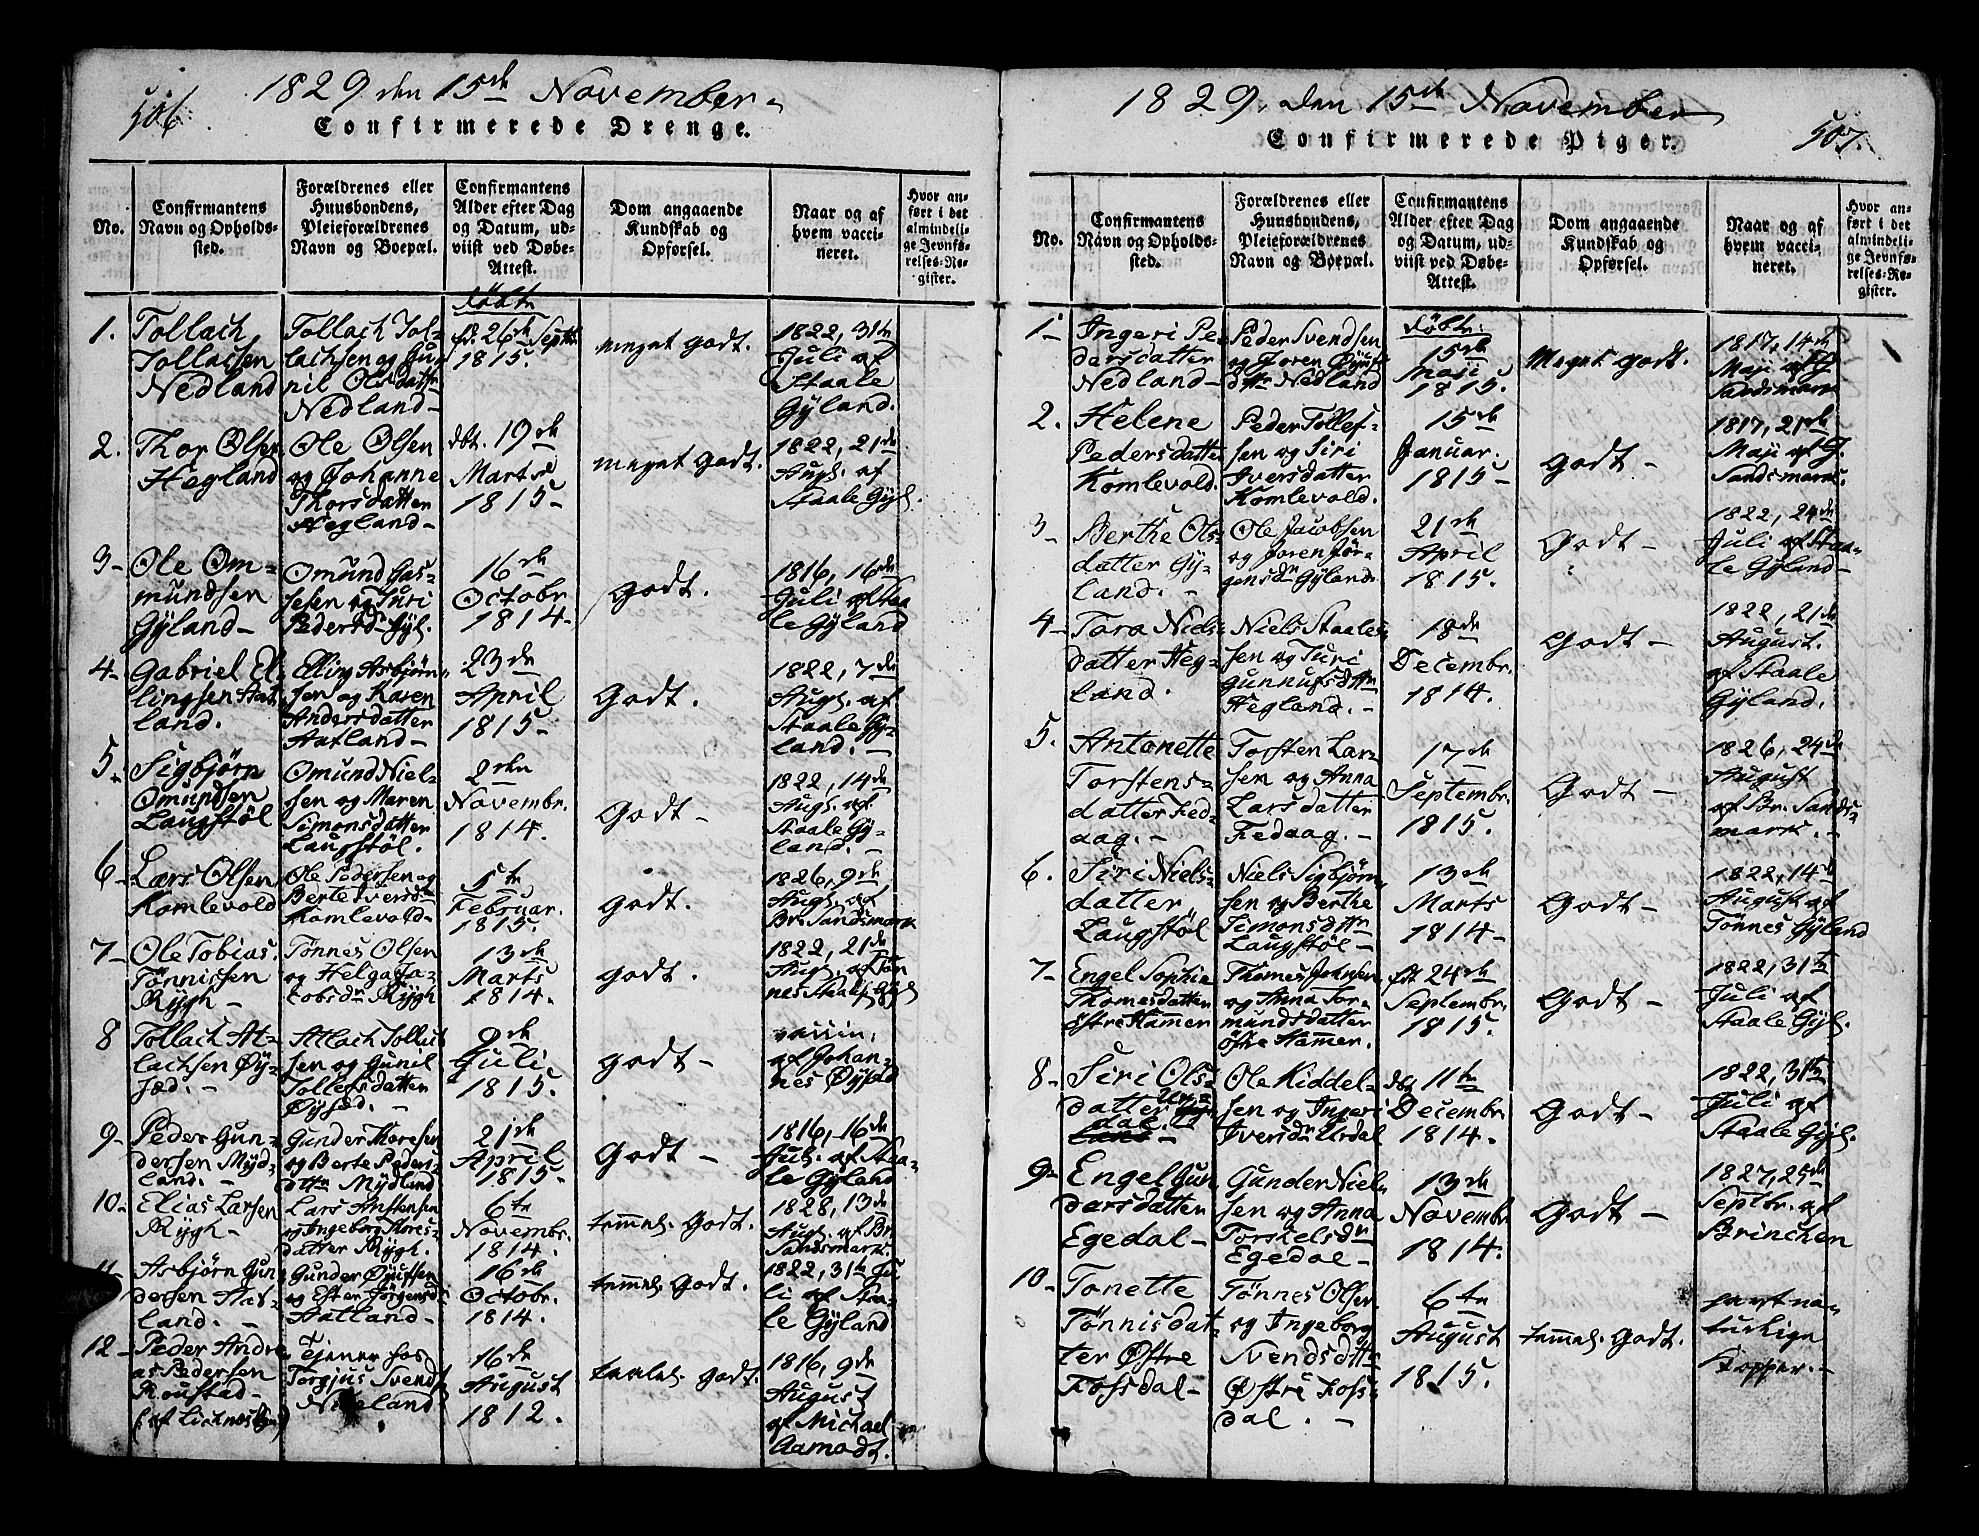 506.
1829 den 15de November.
Confirmerede Drenge.
No.
Confirmantens
Navn og Opholds-
sted.
Forældrenes eller
Huusbondens,
Pleieforældrenes
Navn og Boepæl.
Confirmantens
Alder efter Dag
og Datum, ud-
viist ved Døbe-
Attest.
Dom angaaende
Kundskab og
Opførsel.
Naar og af
hvem vacci-
neret.
Hvor an-
ført i det
almindeli-
ge Jevnfø-
relses-Re-
gister.
1.
Tollach
Tollachsen
Nedland
Tollach Tol-
lachsen og Gu-
nil Olsdattr
Nedland-
døbte
26de Septbr.
1815.
meget godt.
1822, 31te
Juli af
Staale
Gyland.
2.
Thor Olsen
Hegland
Ole Olsen
og Johanne
Thorsdatter
Hegland-
dbt. 19de
Marts
1815-
meget godt.
1822, 21de
Augs. af
Staale Gyl.
3-
Ole Om-
mundsen
Gyland-
Omund Gas-
sesen og Siri
Pedersd. Gyl.
16de
Octobr.
1814-
Godt.
1816, 16de
Juli af Staa
le Gyland
4-
Gabriel El-
lingsen Aat
land.
Elling Asbjörn-
sen og Karen
Andersdatter
Aatland-
23de
April
1815-
Godt.
1822, 7de
Augs. af
Staale Gy-
land. -
5.
Sigbjörn
Omundsen
Laugstöl
Omund Niel-
sen og Maren
Simonsdatter
Laugstöl.
2den
Novembr.
1814.
Godt-
1822, 14de
Augs. af
Staale Gy-
land. -
6-
Lars Olsen
Komlevold
Ole Pedersen og
Berte Iversd.
Komlevold-
5te
Februar.
1815.
Godt.
1826, 9de
Augs. af
Br. Sandsmark
7-
Ole Tobias
Tönnissen
Rygh-
Tönnes Olsen
og Helga Ja-
cobsdr. Rygh
13de
Marts
1814.
Godt.
1822, 21de
Augs. af Tön
nes Staales Gyl
8
Tollach At-
lachsen Öy-
sæd. -
Atlach Tollac
sen og Gunil
Tollefsdatter
Öysæd. -
9de
Juli
1815.
Godt-
vaccin:
af Johan-
nes Öysæd
9-
Peder Gun-
dersen Myd-
land. -
Gunder Thoresen
og Berte Peders-
dttr Mydland
21de
April
1815-
Godt-
1816, 16de
Juli. af Staa-
le Gyland
10-
Elias Larsen
Rygh-
Lars Anstensen
og Ingeborg Thores-
datter Rygh.
6te
Novembr.
1814.
temmel. Godt.
1828, 13de
Augs. af Br.
Sandsmark.
11-
Asbjörn Gun
dersen Aat-
land. -
Gunder Öyufsen
og Ester Jörgensd.
Aatland-
16de
Octobr.
1814.
temmel. Godt.
1822, 31te Ju
li af Staa-
le Gyland
12-
Peder Andre
as Pedersen
Roustad-
Tjener hos
Torgjus Svends
Nedland
16de
August
1812.
taalel. Godt.
1816, 9de
August
af Michael
Aamodt.
1829. den 15de November
Confirmerede Piger.
507.
No.
Confirmantens
Navn og Opholds-
sted.
Forældrenes eller
Huusbondens,
Pleieforældrenes
Navn og Boepæl.
Confirmantens
Alder efter Dag
og Datum, ud-
viist ved Døbe-
Attest.
Dom angaaende
Kundskab og
Opførsel.
Naar og af
hvem vacci-
neret.
Hvor an-
ført i det
almindeli-
ge Jevnfø-
relses-Re-
gister.
1-
Ingeri Pe
dersdatter
Nedland-
Peder Svendsen
og Joren Öyufs
dttr Nedland
döbte:
15de
Maji
1815.
Meget godt.
1817, 14de
Maji af G.
Sandsmark
2.
Helene
Pedersdatter
Komlevold.
Peder Tollef-
sen og Siri
Iversdatter
Komlevold.
15de
Januar.
1815-
Godt-
1817, 21de
Maji af G.
Sandsmark.
3-
Berthe Ols-
datter Gy-
land. -
Ole Jacobsen
og Joren Jör-
gensdr Gyland.
21de
April
1815.
Godt-
1822, 24de
Juli af Staa-
le Gyland-
4-
Tora Niels-
datter Heg-
land.
Niels Staale-
sen og Siri
Gunnufsdttr
Hegland. -
18de
Decembr.
1814.
Godt-
1822, 21de
August.
af Staale
Gyland.
5.
Antonette
Torstens-
datter Fed-
aag. -
Torsten Lar-
sen og Anna
Larsdatter
Fedaag. -
17de
Septembr.
1815.
Godt-
1826, 24de
August
af Br. Sands-
mark. -
6.
Siri Niels-
datter
Laugstöl
Niels Sigbjörn-
sen og Berthe
Simonsdttr
Laugstöl-
13de
Marts
1814-
Godt-
1822, 14de
August af
Tönnes Gyland
7-
Engel Sophie
Thomesdatter
östre Hamer
Thomes Johnsen
og Anna Tor-
mundsdatter
östre Hamer.
24de
Septembr.
1815.
Godt-
1822, 31te
Juli af
Staale Gyl.
8-
Siri Ols-
datter
dal
Ole Kiddel-
sen og Ingeri
Iversdr Urdal
11te
Decembr.
1814.
Godt-
1822, 31te
Juli af
Staale Gyl.
9-
Engel Gun
dersdatter
Egedal-
Gunder Niel-
sen og Anna
Torkelsdr
Egedal-
13de
Novembr.
1814.
Godt-
1827, 25de
Septbr. af
Brinchen
10-
Tonette
Tönnisdat-
ter Östre
Fossdal-
Tönnes Olsen
og Ingeborg
Svendsdttr
Östre Foss-
dal. -
6te
August
1815.
temmel. Godt.
havt na-
turlige
Kopper. -